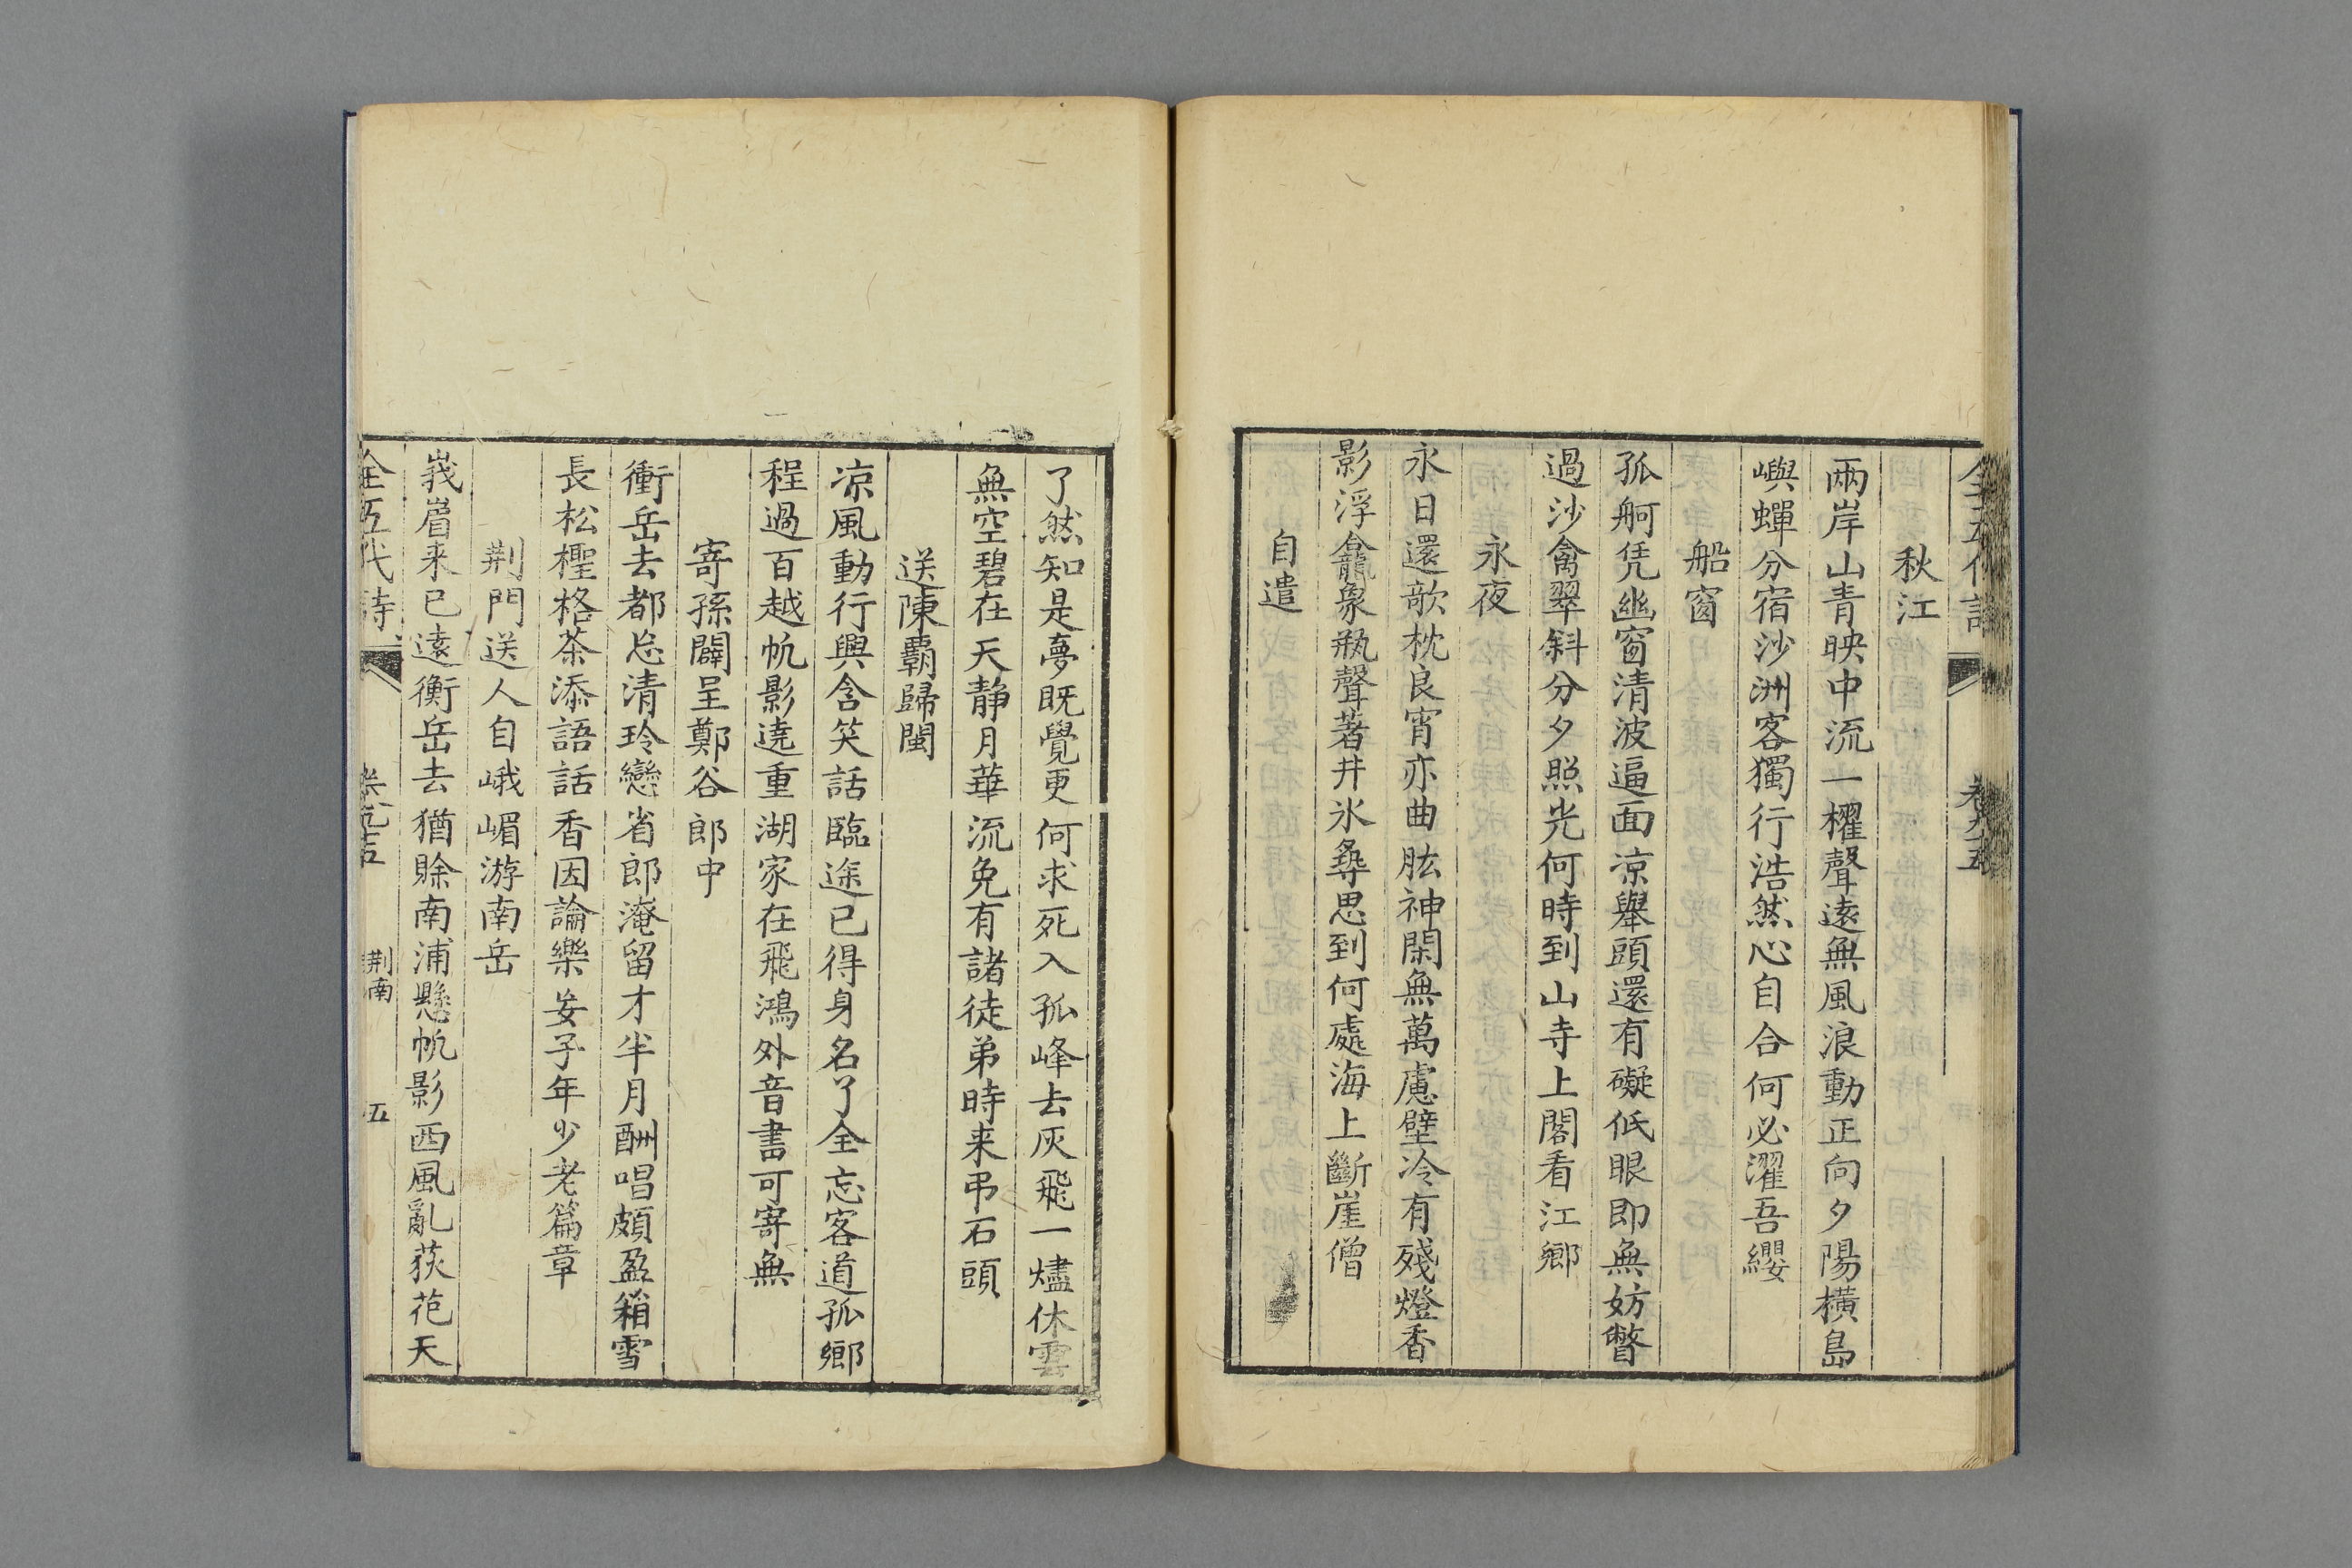 秋江
兩岸山青映中流一櫂聲遠無風浪動正向夕陽橫島
嶼蟬分宿沙洲客獨行浩然心自合何必濯吾纓
船窗
孤舸凭幽窗清波逼面凉舉頭還有礙低眼即無妨瞥
過沙禽翠斜分夕照光何時到山寺上閣看江鄉
永夜
永日還歌枕良宵亦曲肱神閑無萬慮壁冷有殘燈香
影浮龕象瓶聲著井氷尋思到何處海上斷崖僧
自遣
了然知是夢既覺更何求死入孤峰去灰飛一燼休雲
無空碧在天静月華流免有諸徒弟時来弔石頭
送陳覇歸閩
凉風動行興含笑話臨途已得身名了全忘客道孤鄉
程過百越帆影遶重湖家在飛鴻外音書可寄無
寄孫闢呈鄭谷郎中
衝岳去都忘清玲戀省郎淹留才半月酬唱頗盈箱雪
長松檉格茶添語話香因論樂安子年少老篇章
荆門送人自峨嵋游南岳
峩眉来已遠衡岳去猶賒南浦懸帆影西風亂荻花天
全五代詩
荆南
五